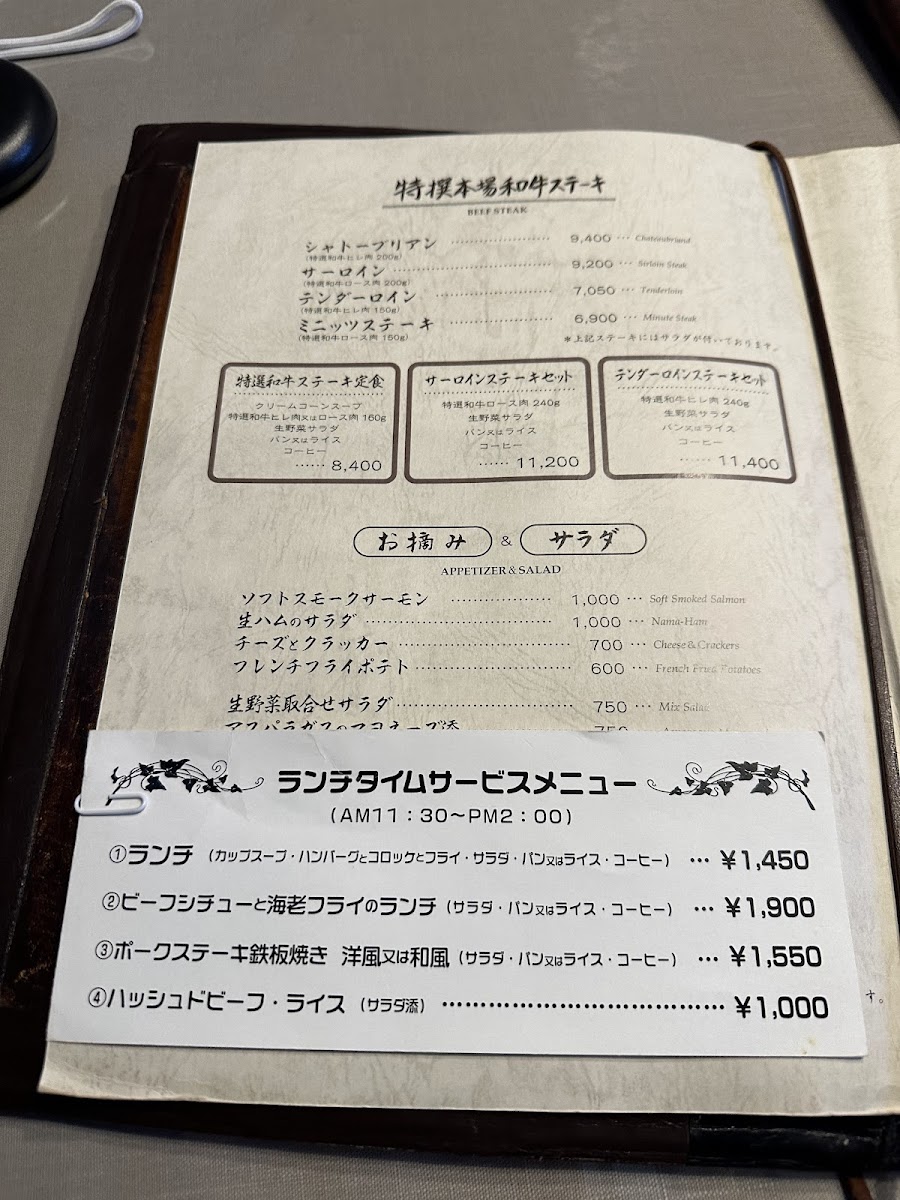 特撰本場和牛ステーキ
BEEF STEAK
シャトーブリアン ………………… 9,400 … Chateaubriand
(特選和牛ヒレ肉 200g)
サーロイン ………………………… 9,200 … Sirloin Steak
(特選和牛ロース肉 200g)
テンダーロイン …………………… 7,050 … Tenderloin
(特選和牛ヒレ肉 150g)
ミニッツステーキ ………………… 6,900 … Minute Steak
(特選和牛ロース肉 150g)
＊上記ステーキにはサラダが付いております。
特選和牛ステーキ定食
クリームコーンスープ
特選和牛ヒレ肉又はロース肉 160g
生野菜サラダ
パン又はライス
コーヒー
…… 8,400
サーロインステーキセット
特選和牛ロース肉 240g
生野菜サラダ
パン又はライス
コーヒー
…… 11,200
テンダーロインステーキセット
特選和牛ヒレ肉 240g
生野菜サラダ
パン又はライス
コーヒー
…… 11,400
お摘み & サラダ
APPETIZER & SALAD
ソフトスモークサーモン ………………… 1,000 … Soft Smoked Salmon
生ハムのサラダ ………………………… 1,000 … Nama-Ham
チーズとクラッカー …………………… 700 … Cheese & Crackers
フレンチフライポテト ………………… 600 … French Fried Potatoes
生野菜取合せサラダ …………………… 750 … Mix Salad
アスパラガスのマヨネーズ添 750
ランチタイムサービスメニュー
(AM11：30～PM2：00)
①ランチ (カップスープ・ハンバーグとコロッケとフライ・サラダ・パン又はライス・コーヒー) … ￥1,450
②ビーフシチューと海老フライのランチ (サラダ・パン又はライス・コーヒー) … ￥1,900
③ポークステーキ鉄板焼き 洋風又は和風 (サラダ・パン又はライス・コーヒー) … ￥1,550
④ハッシュドビーフ・ライス (サラダ添) ……………………………… ￥1,000
す。